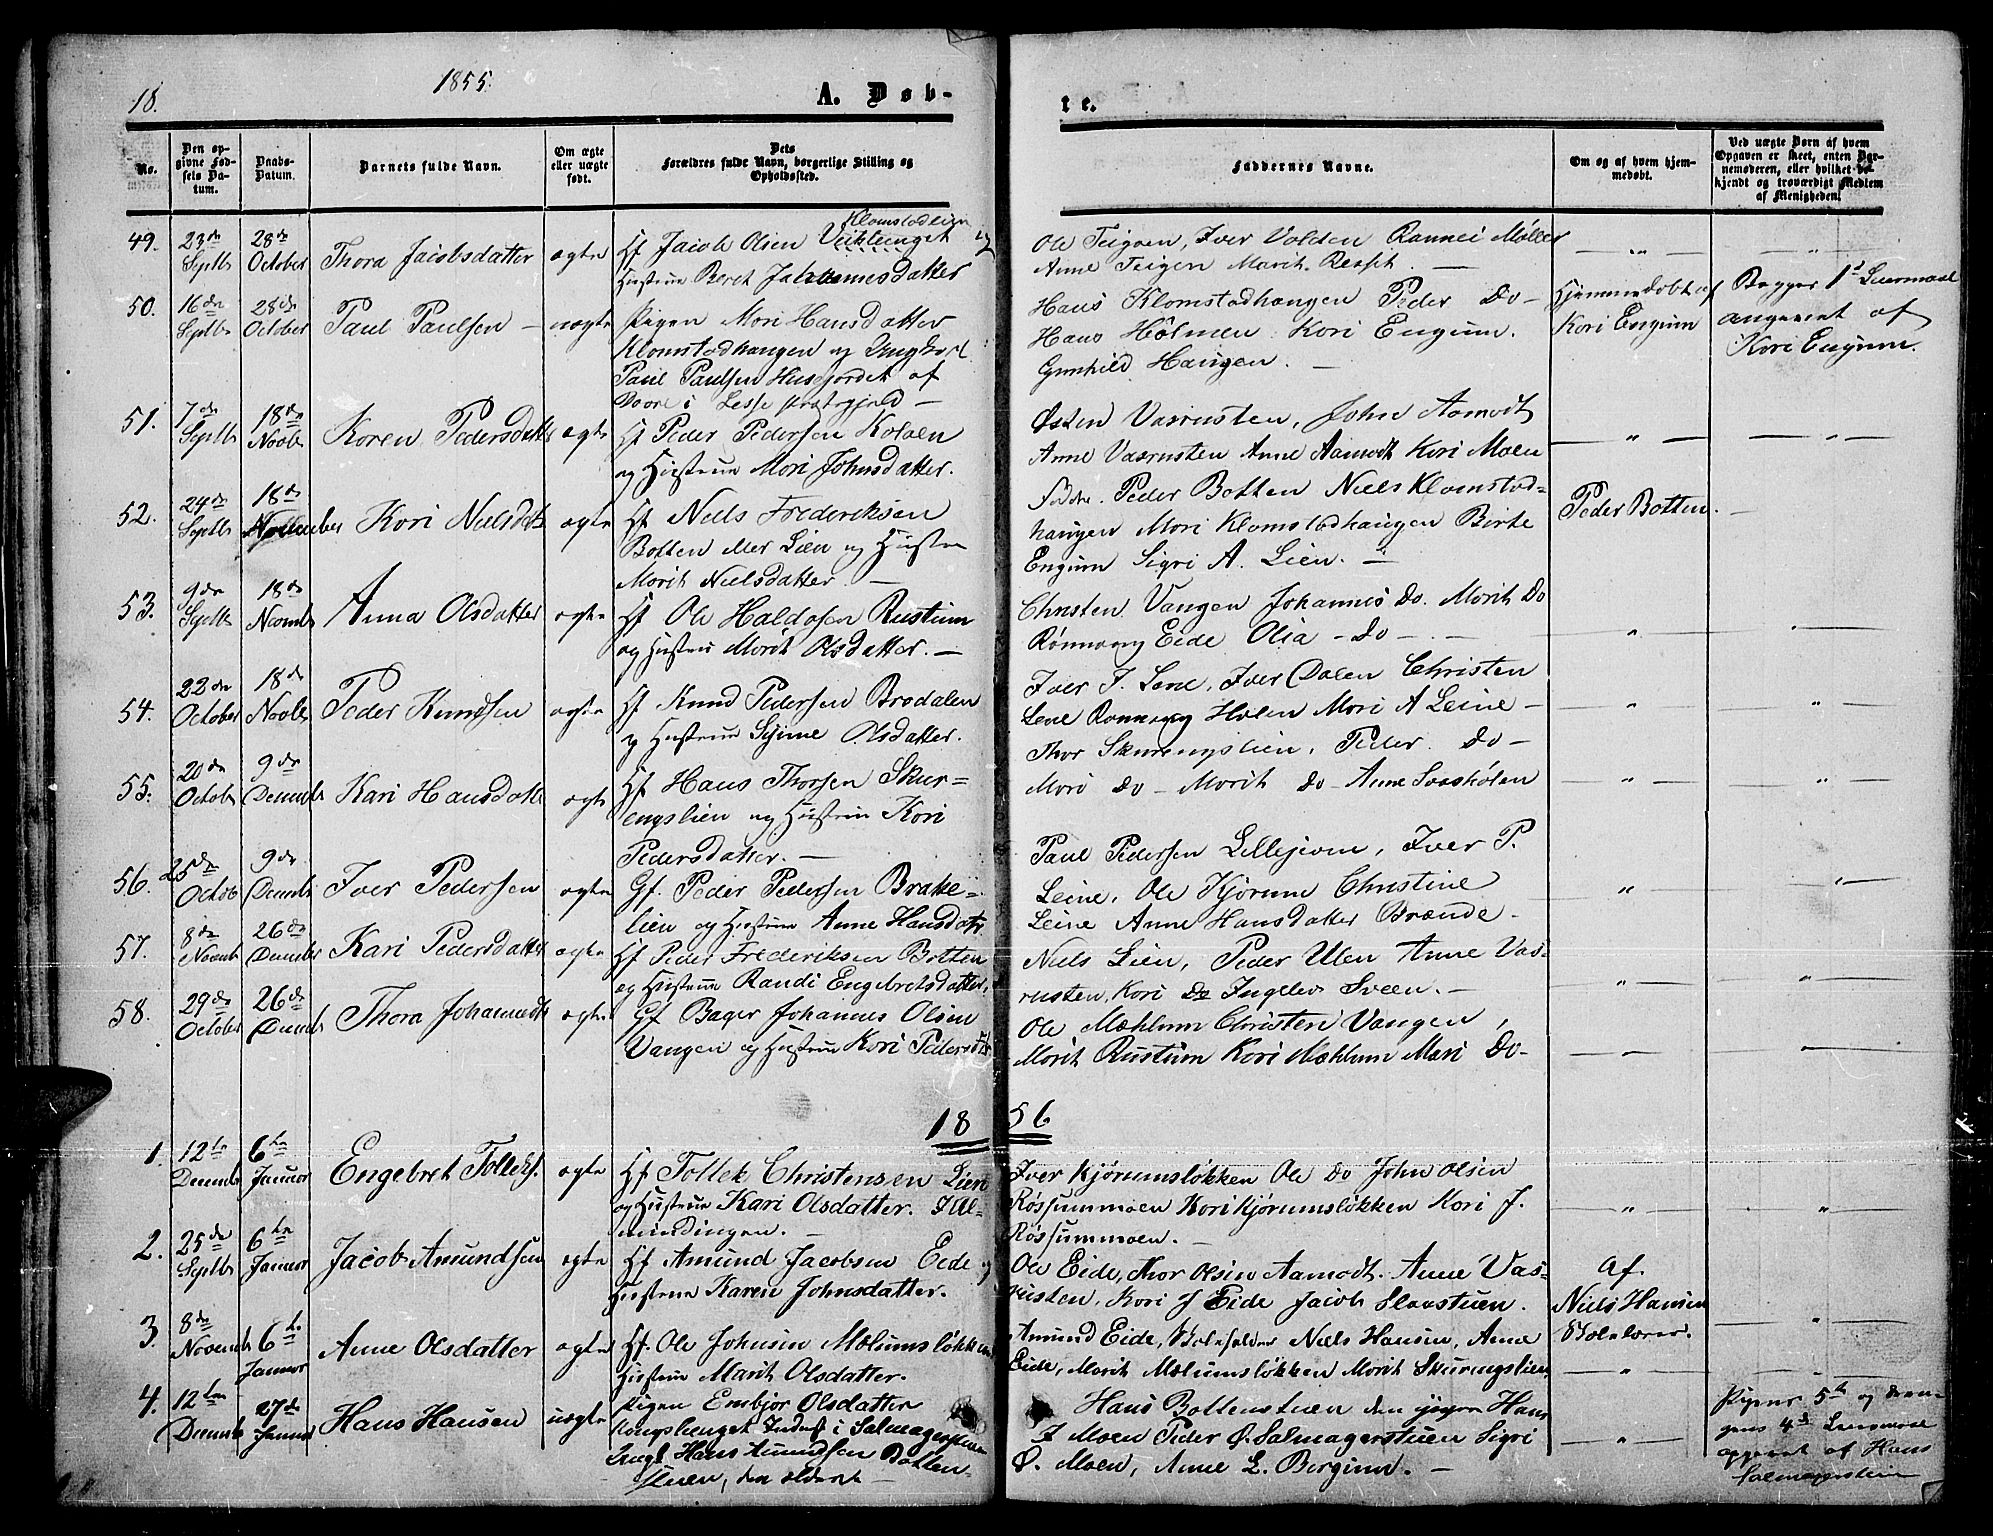 18.
1855.
A. Døb-
te.
No.
Den op-
givne Fød-
sels Da-
tum.
Daabs-
Datum.
Barnets fulde Navn.
Om ægte
eller uægte
født.
Dets
Forældres fulde Navn, borgerlige Stilling og
Opholdssted.
Faddernes Navne.
Om og af hvem hjem-
medøbt.
Ved uægte Børn af hvem
Opgaven er skeet, enten Bar-
nemoderen, eller hvilket be-
kjendt og troværdigt Medlem
af Menigheden.
49.
23de
Septb
28de
October
Thora Jacobsdatter
ægte
Klomstadlien
Hf Jacob Olsen og
Hustrue Beret Johannesdatter
Ole Teigen, Iver Volden Rannei Møller
Anne Teigen Marit Resset
50.
16de
Septb
28de
October
Paul Paulsen
uægte
Pigen Mari Hansdatter
Klomstadhaugen og Ungkarl
Paul Paulsen Husefjordet af
Dovre i Lesse præstegjeld
Hans Klomstadhaugen Peder Do-
Hans Holmen Kari Engum.
Gunhild Haugen.
Hjemmedøbt af
Kari Engum
Begges 1st Leiermaal
angivet af
Kari Engum.
51.
7de
Septb
18de
Novbr
Karen Pedersdatter
ægte
Hf Peder Pedersen Kolven
og Hustrue Mari Johnsdatter.
Østen Vasrusten, John Aamodt
Anne Vasrusten Anne Aamodt Kari Moen
52.
24de
Septb
18de
November
Kari Nielsdtr
ægte
Hf Niels Frederiksen
Botten Lien og Hustrue
Marit Nielsdatter.
Peder Botten Niels Klomstad-
haugen Mari Klomstadhaugen Birte
Engum Sigri A. Lien.
Peder Botten.
53.
9de
Septb
18de
Novembr
Anna Olsdatter
ægte
Hf Ole Haldosen Rustum
og Hustrue Marit Olsdatter.
Christen Vangen Johannes Do. Marit Do
Rønnaug Eide Olia Do
54.
22de
October
18de
Novbr
Peder Knudsen
ægte
Hf Knud Pedersen Brodalen
og Hustrue Signe Olsdatter.
Iver I. Lene, Iver Dalen Christen
Lene Rønnaug Mari A Leine
55.
20de
October
9de
Decembr
Kari Hansdatter
ægte
Hf Hans Thorsen Skur-
engslien og Hustrue Kari
Pedersdatter.
Thor Skurengslien, Peder Do-
Mari Do Marit do Anne
56.
25de
Octob
9de
Decembr
Iver Pedersen
ægte
Gf. Peder Pedersen Brakke-
lien og Hustrue Anne Hansdatr
Paul Pedersen, Iver P.
Leine, Ole Kjørum Christine
Leine Anne Hansdatter Brænde.
57.
8de
Novembr
26de
Decembr
Kari Pedersdatter
ægte
Hf Peder Frederiksen Botten
og Hustrue Randi Engebretsdatter.
Niels Lien, Peder Ulen Anne Vas-
rusten, Kari Do Ingelev Sveen.
58.
29de
October
26de
Decembr
Thora Johannesdtr
ægte
Gf Bager Johannes Olsen
Vangen og Hustrue Kari Pedersdtr
Ole Mæhlum Christen Vangen,
Marit Rustum Kari Mæhlum Mari Do-
1856
1.
12te
Decembr
6te
Januar
Engebret Tolleks.
ægte
Hf Tollek Christensen Lien
og Hustrue Kari Olsdatter. I Al-
mindingen.
Iver Kjørumsløkken Ole Do John Olsen
Røssummoen Kari Kjørumsløkken Kari J.
Røssummoen.
2.
25de
Septb
6te
Januar
Jacob Amundsen
ægte
Hf Amund Jacobsen Eide og
Hustrue Karen Johnsdatter.
Ole Eide, Thor Olsen Aamodt. Anne Vas-
rusten, Kari J Eide Jacob
Af
Niels Hansen
Skolelærer.
3.
8de
Novembr
6te
Januar
Anne Olsdatter
ægte
Hf. Ole Johnsen Mælumsløkken
Hustrue Marit Olsdatter.
Amund Eide, Niels Hansen, Anne
Eide, Marit Mælumsløkken Marit Skurengslien
4.
12te
Decembr
27de
Januar
Hans Hansen
uægte
Pigen Embjør Olsdatter
Kongslienget Inderst i Salmagerstuen
Ungk Hans Amundsen Botten-
stuen, den ældre
Hans Bottenstuen den yngre Hans
J Moen Peder Ø. Salmagerstuen Sigri
Ø. Moen, Anne L. Bergum.
Pigens 5te og dren-
gens 4de Leiermaal
opgivet af Hans
Salmagerstuen